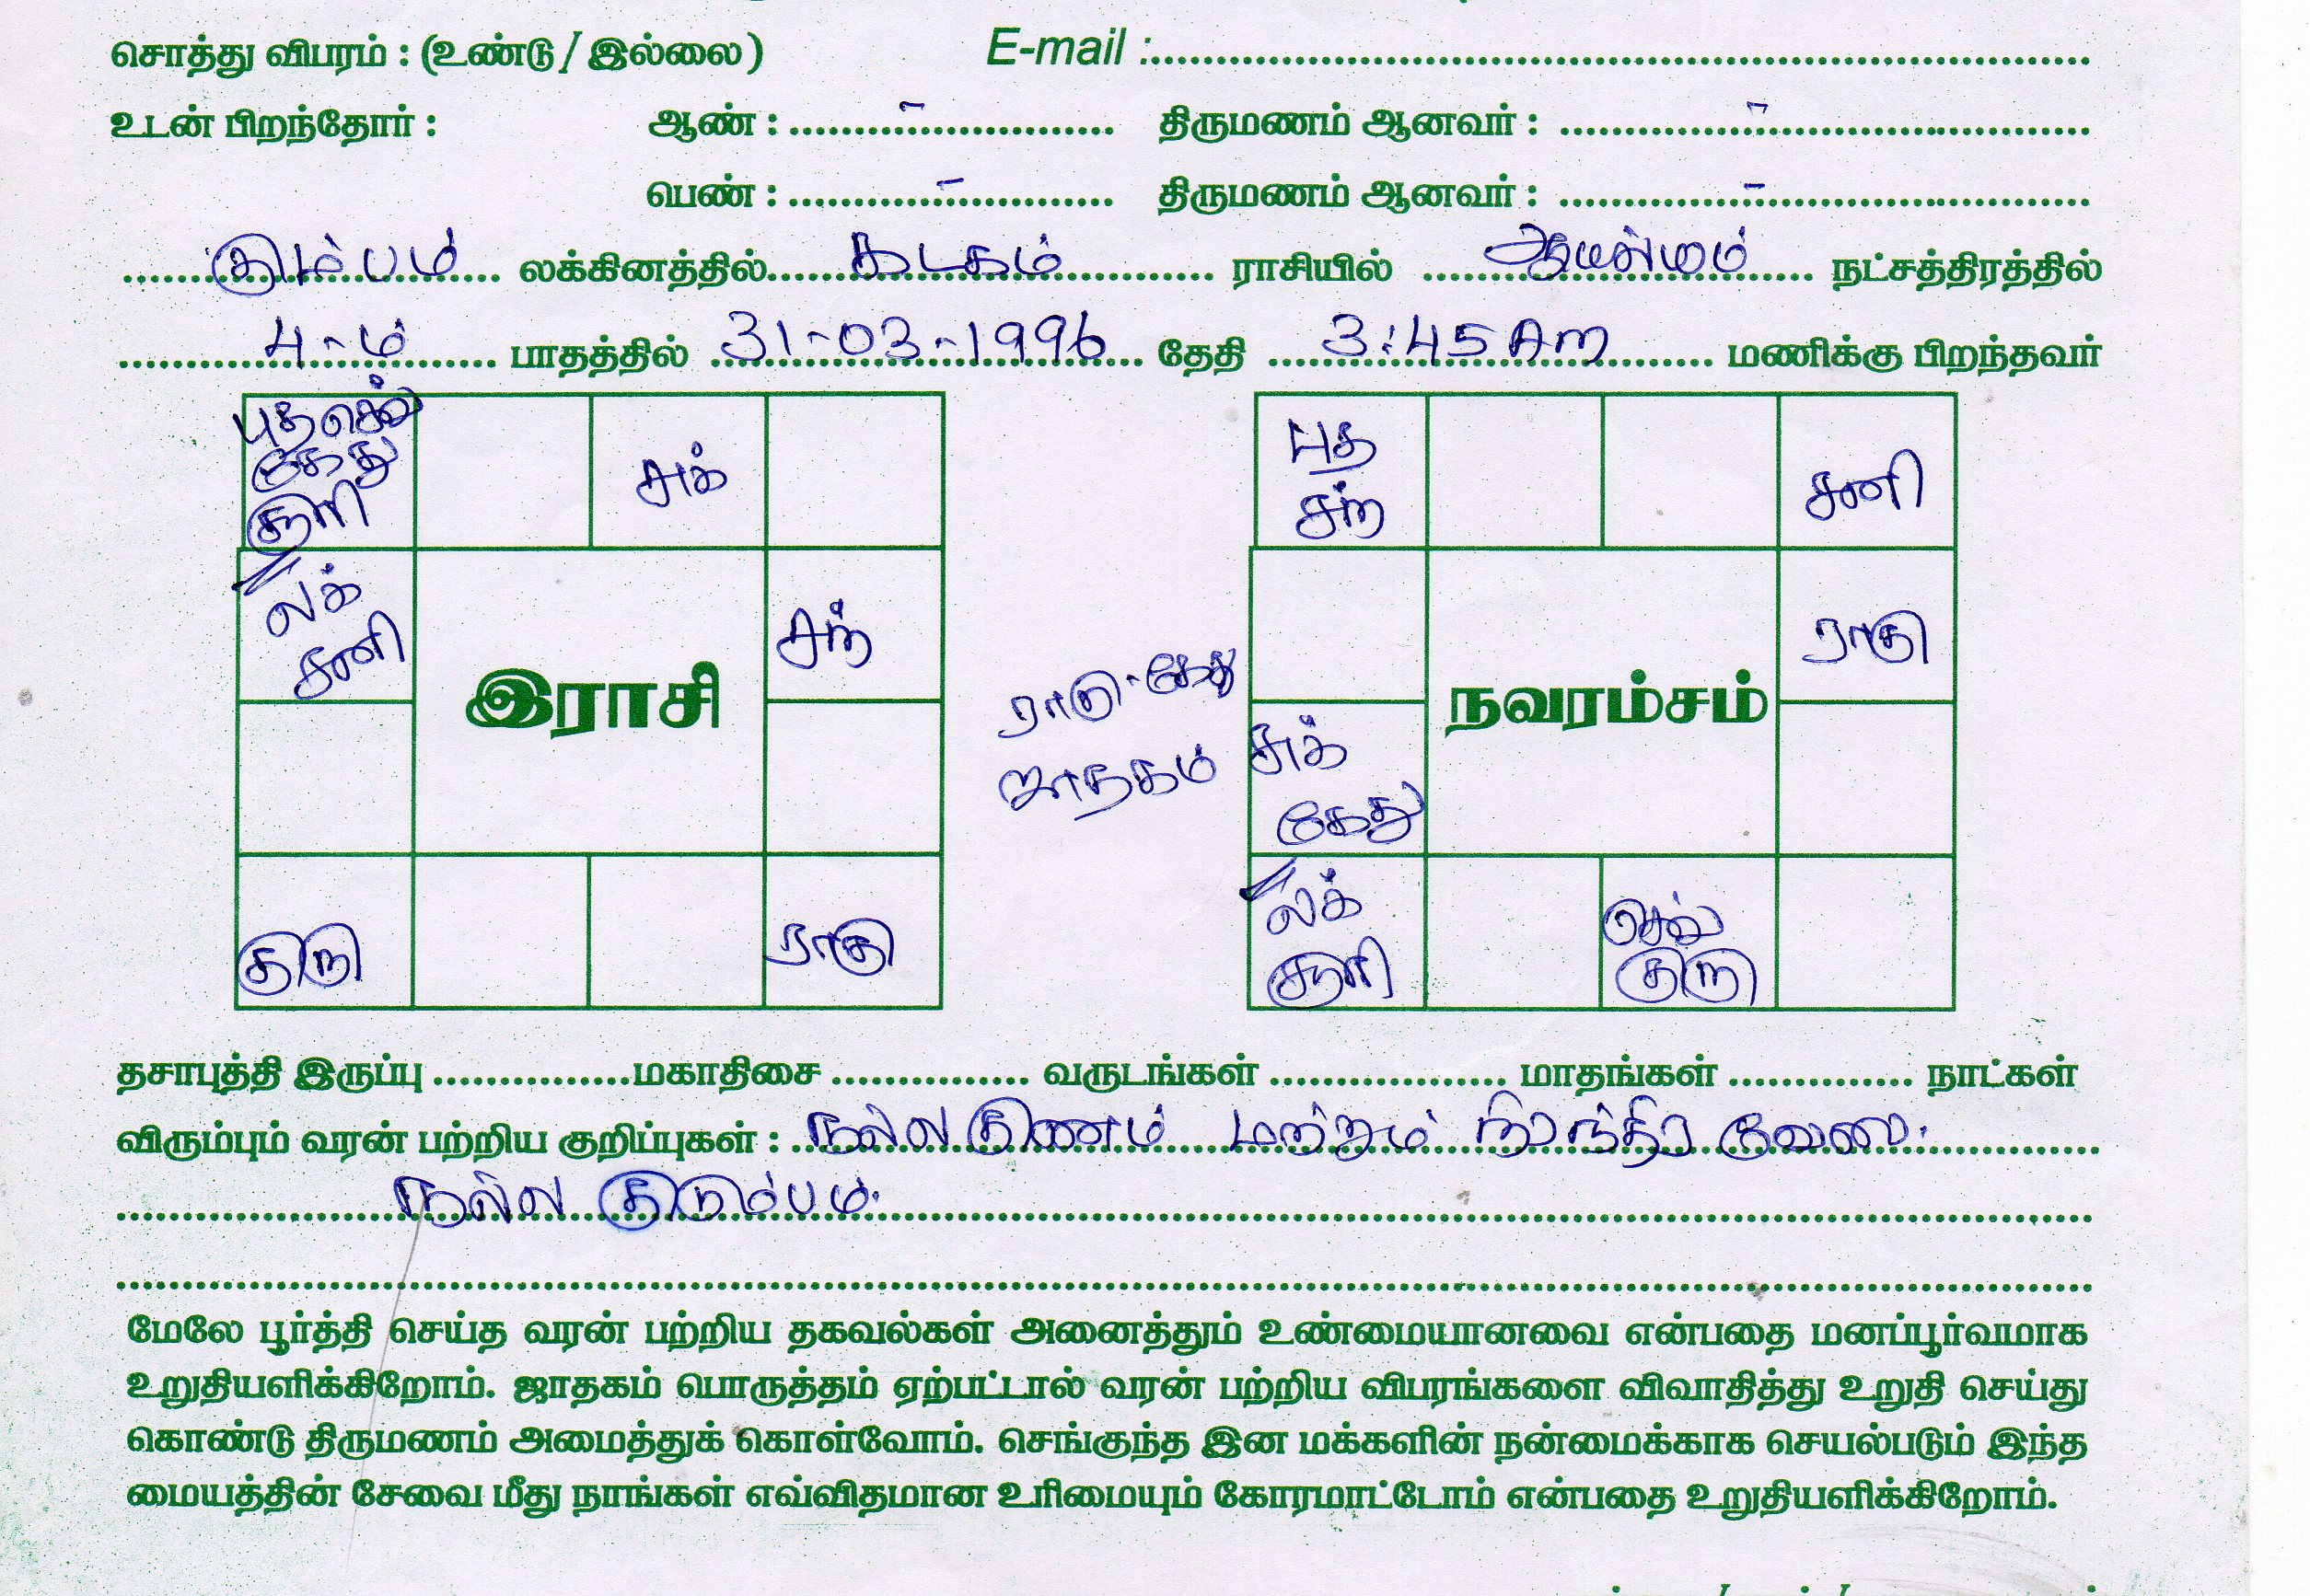 சொத்து விபரம் : (உண்டு / இல்லை) E-mail :
உடன் பிறந்தோர் : ஆண் : - திருமணம் ஆனவர் : -
பெண் : - திருமணம் ஆனவர் : -
கும்பம் லக்கினத்தில் கடகம் ராசியில் ஆயில்யம் நட்சத்திரத்தில்
4-ம் பாதத்தில் 31-03-1996 தேதி 3:45 Am மணிக்கு பிறந்தவர்
புத செவ்
கேது
சூரி
சுக்
லக்
சனி
சந்
இராசி
குரு
ராகு
ராகு-கேது
ஜாதகம்
புத
சந்
சனி
ராகு
நவரம்சம்
சுக்
கேது
லக்
சூரி
செவ்
குரு
தசாபுத்தி இருப்பு மகாதிசை வருடங்கள் மாதங்கள் நாட்கள்
விரும்பும் வரன் பற்றிய குறிப்புகள் : நல்ல குணம் மற்றும் நிரந்திர வேலை.
நல்ல குடும்பம்.
மேலே பூர்த்தி செய்த வரன் பற்றிய தகவல்கள் அனைத்தும் உண்மையானவை என்பதை மனப்பூர்வமாக
உறுதியளிக்கிறோம். ஜாதகம் பொருத்தம் ஏற்பட்டால் வரன் பற்றிய விபரங்களை விவாதித்து உறுதி செய்து
கொண்டு திருமணம் அமைத்துக் கொள்வோம். செங்குந்த இன மக்களின் நன்மைக்காக செயல்படும் இந்த
மையத்தின் சேவை மீது நாங்கள் எவ்விதமான உரிமையும் கோரமாட்டோம் என்பதை உறுதியளிக்கிறோம்.